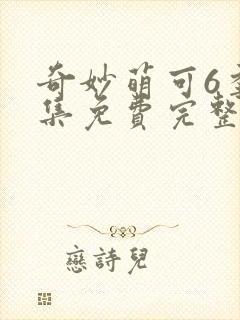 奇妙萌可6全
集免费完整
戀詩兒